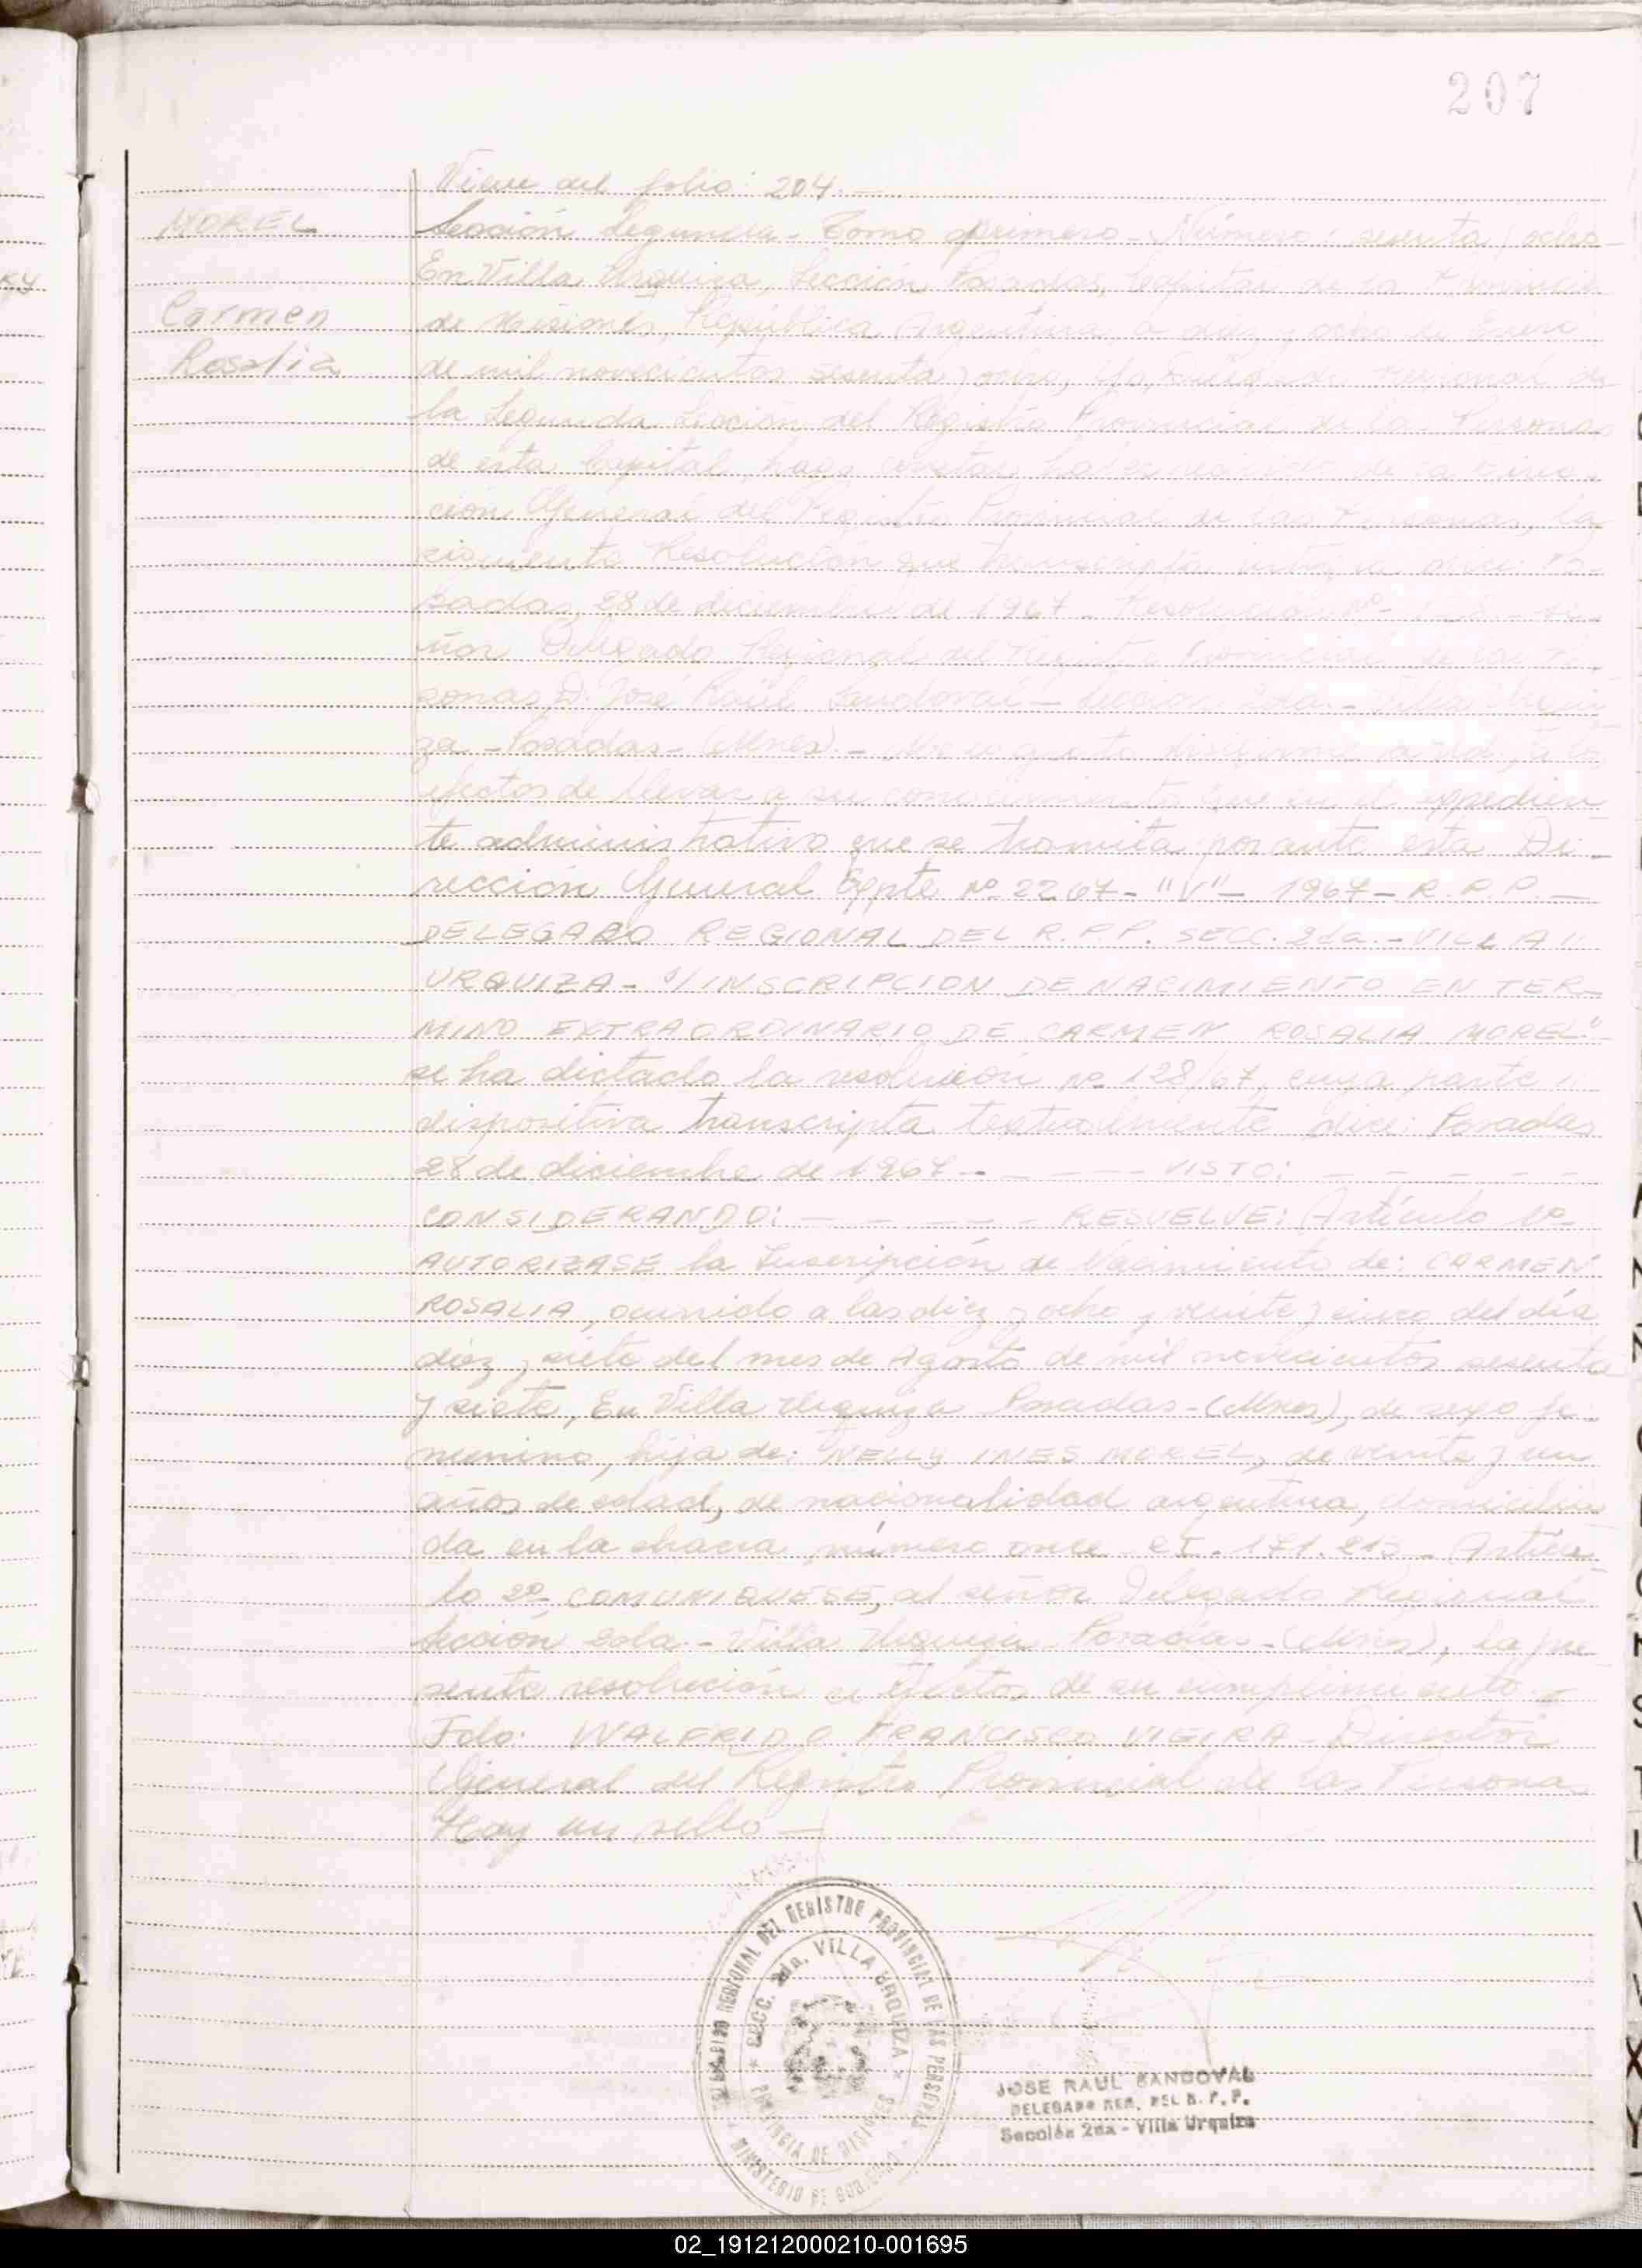 207
Viene del folio: 204.—
MOREL
Carmen
Rosalia
Sección Segunda - Tomo primero - Número: sesenta y ocho -
En Villa Urquiza, Sección Posadas, Capital de la Provincia
de Misiones, República Argentina, a diez y ocho de Enero
de mil novecientos sesenta y ocho, Yo, Delegado Regional de
la Segunda Sección del Registro Provincial de las Personas
de esta Capital, hago constar haber recibido de la Direc-
ción General del Registro Provincial de las Personas, la
siguiente Resolución que transcripta íntegra dice: Po-
sadas, 28 de diciembre de 1967 - Resolución Nº 128 - Se-
ñor Delegado Regional del Registro Provincial de las Per
sonas D. José Raúl Sandoval - Sección 2da. - Villa Urqui
za - Posadas - (Mnes) - Me es grato dirigirme a Ud, a los
efectos de llevar a su conocimiento que en el expedien
te administrativo que se tramita por ante esta Di-
rección General Expte Nº 2267 - "V" - 1967 - R.P.P. —
DELEGADO REGIONAL DEL R.P.P. SECC. 2da. - VILLA "
URQUIZA - S/INSCRIPCION DE NACIMIENTO EN TER-
MINO EXTRAORDINARIO DE CARMEN ROSALIA MOREL" -
se ha dictado la resolución Nº 128/67, cuya parte "
dispositiva transcripta textualmente dice: Posadas
28 de diciembre de 1967 - — — — VISTO: — — — — —
CONSIDERANDO: — — — — - RESUELVE: Artículo 1º
AUTORIZASE la Inscripción de Nacimiento de: CARMEN
ROSALIA, ocurrido a las diez y ocho y veinte y cinco del día
diez y siete del mes de Agosto de mil novecientos sesenta
y siete, En Villa Urquiza Posadas - (Mnes), de sexo fe-
menino, hija de: NELLY INES MOREL, de veinte y un
años de edad, de nacionalidad argentina, domicilia
da en la chacra número once CI. 171.213 - Artícu
lo 2º COMUNIQUESE, al señor Delegado Regional
Sección 2da. - Villa Urquiza Posadas - (Mnes), la pre
sente resolución a efectos de su cumplimiento. -
Fdo: WALFRIDO FRANCISCO VIEIRA - Director
General del Registro Provincial de las Personas
Hay un sello —
DELEGADO REGIONAL DEL REGISTRO PROVINCIAL DE LAS PERSONAS
SECC. 2da. VILLA URQUIZA
PROVINCIA DE MISIONES
MINISTERIO DE GOBIERNO
JOSE RAUL SANDOVAL
DELEGADO REG. DEL R. P. P.
Sección 2da - Villa Urquiza
02_191212000210-001695